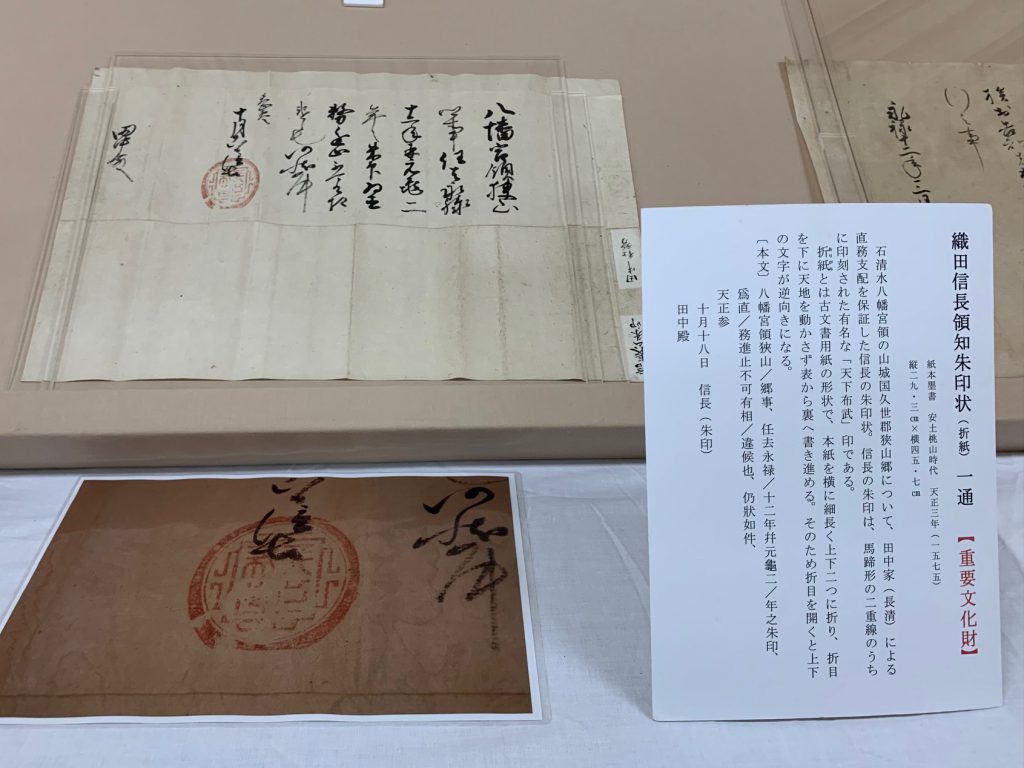 八幡宮領狭山
郷事任去永禄
十二年并元亀二
年之朱印為直
務進止不可有相
違候也仍状如件
天正参
十月十八日 信長
田中殿
永禄十二年三月
織田信長領知朱印状(折紙) 一通 【重要文化財】
紙本墨書 安土桃山時代 天正三年(一五七五)
縦二九・三㎝×横四五・七㎝
石清水八幡宮領の山城国久世郡狭山郷について、田中家(長清)による
直務支配を保証した信長の朱印状。信長の朱印は、馬蹄形の二重線のうち
に印刻された有名な「天下布武」印である。
折紙とは古文書用紙の形状で、本紙を横に細長く上下二つに折り、折目
を下に天地を動かさず表から裏へ書き進める。そのため折目を開くと上下
の文字が逆向きになる。
〔本文〕八幡宮領狭山/郷事、任去永禄/十二年幷元龜二/年之朱印、
爲直/務進止不可有相/違候也、仍狀如件、
天正参
十月十八日 信長(朱印)
田中殿